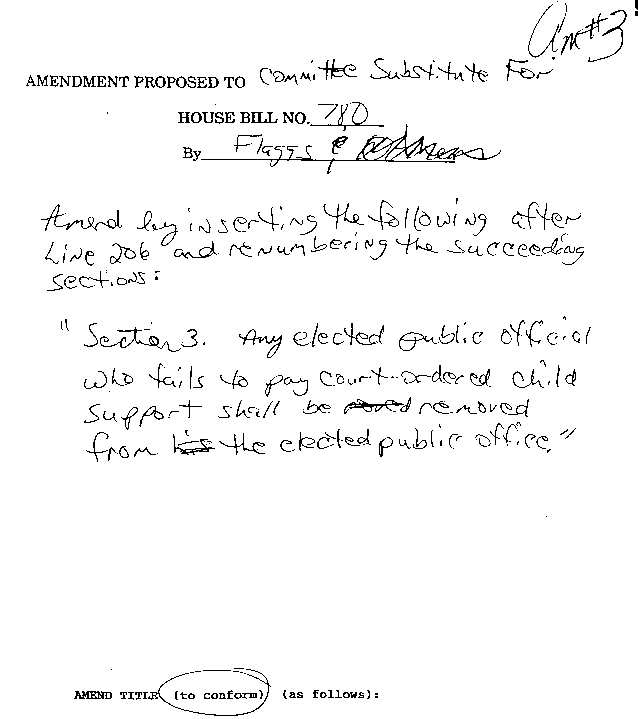 Am #3
AMENDMENT PROPOSED TO Committee Substitute For
HOUSE BILL NO. 780
By Flaggs &
Amend by inserting the following after
Line 206 and renumbering the succeeding
sections:
"Section 3. Any elected public official
who fails to pay court-ordered child
support shall be removed
from his the elected public office."
AMEND TITLE (to conform) (as follows):